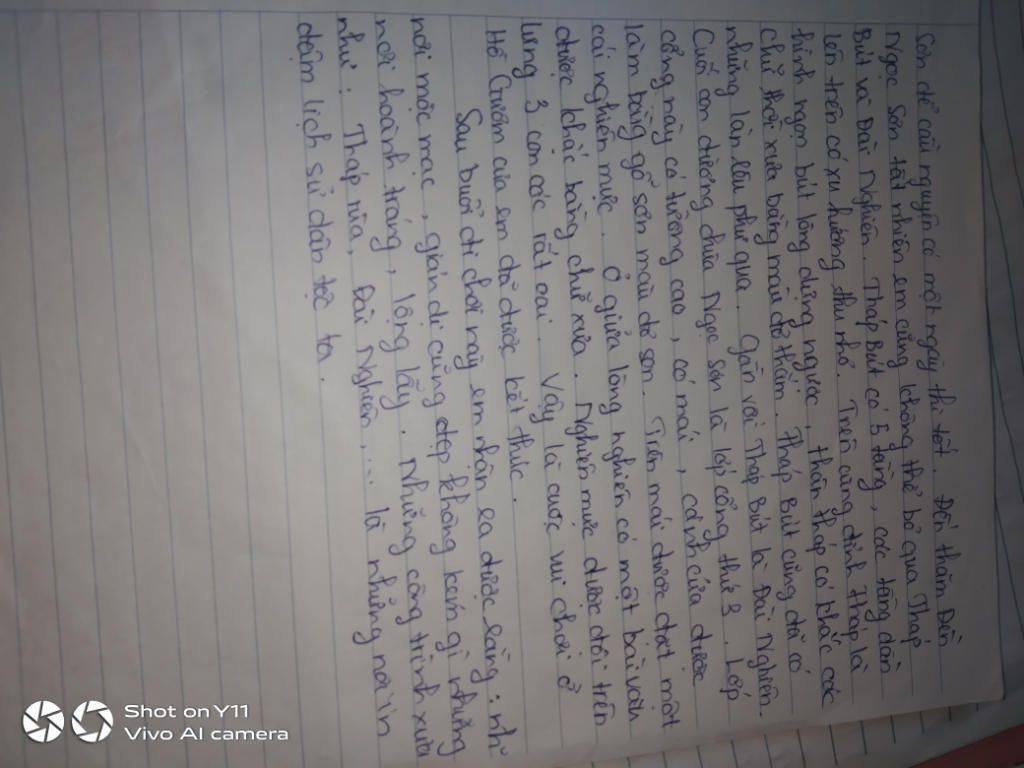 Sơn để cầu nguyện có một ngày thi tốt. Đến thăm Đền
Ngọc Sơn tất nhiên em cũng không thể bỏ qua Tháp
Bút và Đài Nghiên. Tháp Bút có 5 tầng, các tầng dần
lên trên có xu hướng thu nhỏ. Trên cùng đỉnh tháp là
hình ngọn bút lông dựng ngược, thân tháp có khắc các
chữ thời xưa bằng màu đỏ thắm. Tháp Bút cũng đã có
những lần lều phù qua. Gần với Tháp Bút là Đài Nghiên.
Cuối con đường chùa Ngọc Sơn là lớp cổng thứ 3. Lớp
cổng này có tường cao, có mái, cánh cửa được
làm bằng gỗ sơn màu đỏ son. Trên mái được đặt một
cái nghiên mực. Ở giữa lòng nghiên có một bài văn
được khắc bằng chữ xưa. Nghiên mực được đội trên
lưng 3 con cóc rất oai. Vậy là cuộc vui chơi ở
Hồ Gươm của em đã được kết thúc.
Sau buổi đi chơi này em nhận ra được rằng: những
nơi mộc mạc, giản dị cũng đẹp không kém gì những
nơi hoành tráng, lộng lẫy. Những công trình xưa
như: Tháp rùa, Đài Nghiên,... là những nơi in
đậm lịch sử dân tộc ta.
Shot on Y11
Vivo AI camera